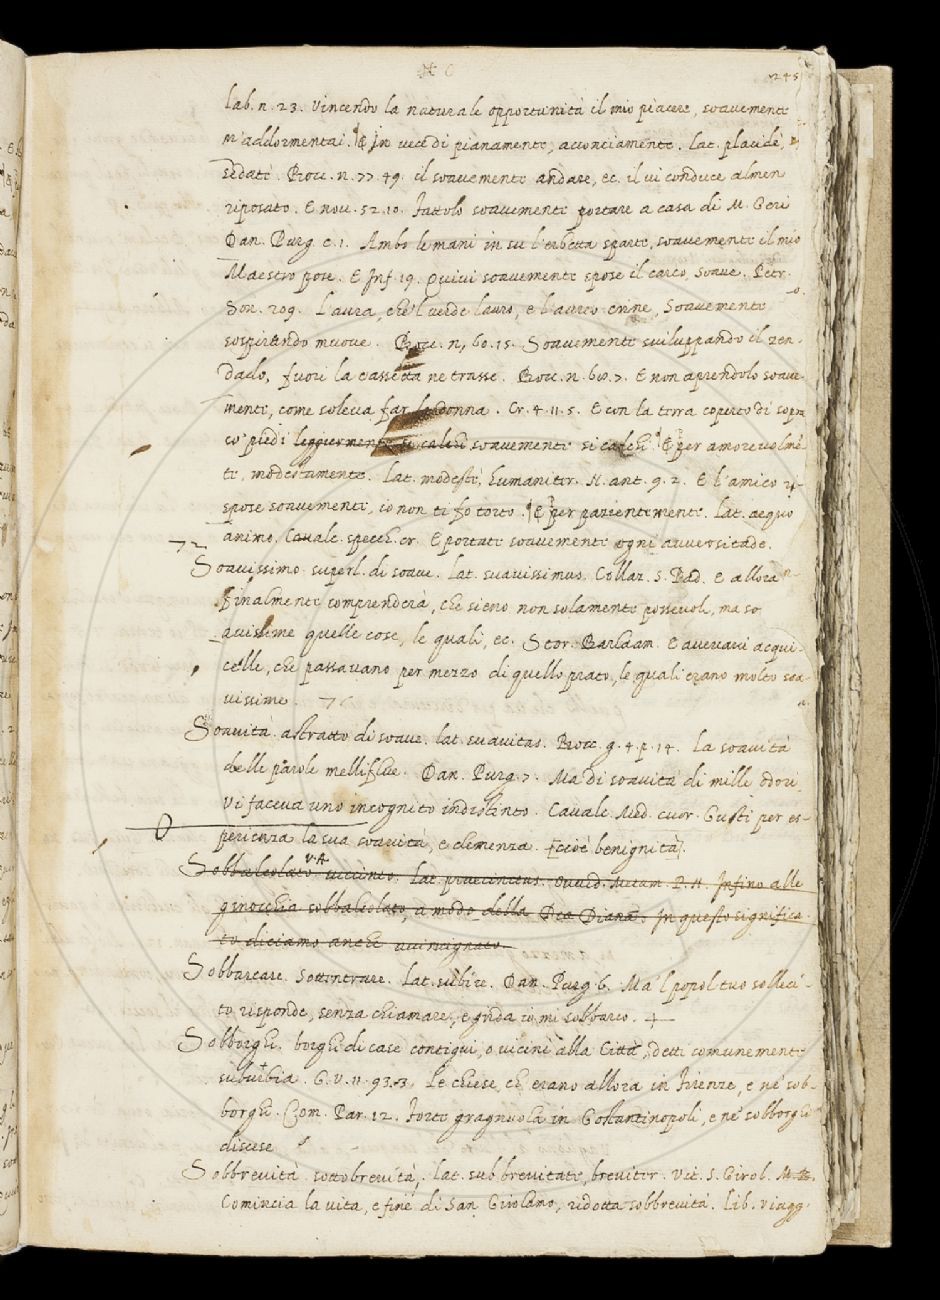 245
lab. n. 23. Vincendo la naturale opportunità il mio piacere, soavemente
m'addormentai. ¶ E in vece di pianamente, acconciamente. lat. placidè,
sedatè. Bocc. n. 77. 49. il soavemente andare, ec. il vi conduce almen
riposato. E nov. 52. 10. fattolo soavemente portare a casa di M. Geri
Dan. Purg. c. 1. Ambo le mani in su l'erbetta sparte, soavemente il mio
Maestro pose. E Inf. 19. Quivi soavemente spose il carco, soave. Petr.
Son. 209. L'aura, che'l verde lauro, e l'aureo crine, Soavemente
sospirando muove. Bocc. n. 60. 15. Soavemente sviluppando il zen-
dado, fuori la cassetta ne trasse. Bocc. n. 7. E non aprendolo soave-
mente, come soleva far la donna. Cr. 4. 11. 5. E con la terra coperto di sopra
co' piedi leggiermente si calchi soavemente si calchi. ¶ E per amorevolmẽ-
te, modestamente. Lat. modestè, humaniter. N. ant. 9. 2. E l'amico ri-
spose soavemente, io non ti fo torto. ¶ E per pazientemente. Lat. aequo
animo. Cavalc. specch. cr. E portate soavemente ogni avversitade.
Soavissimo. superl. di soave. lat. suavissimus. Collaz. S. Pad. E allora
finalmente comprenderà, che sieno non solamente possevoli, ma so
avissime quelle cose, le quali, ec. Stor. Barlaam. E avevavi acqui-
celle, che passavano per mezzo di quello prato, le quali erano molto soa-
vissime.
Soavità. astratto di soave. lat. suavitas. Bocc. g. 4. p. 14. La soavità
delle parole melliflue. Dan. Purg. 7. Ma di soavità di mille odori
Vi faceva uno incognito indistinto. Cavalc. Med. cuor. Gusti per es-
perienza la sua soavità, e clemenza. [cioè benignità].
Sobbalcolato V.A. succinto. Lat. praecinctus. Ovvid. Metam. P. N. Infino alle
ginocchia sobbalcolato a modo della Dea Diana. In questo significa-
to diciamo anche succignato.
Sobbarcare. Sottentrare. Lat. subire. Dan. Purg. 6. Ma'l popol tuo solleci-
to risponde, senza chiamare, e grida io mi sobbarco.
Sobborghi. borghi di case contigui, o vicini alla Città, detti comunemente
suburbia. G. V. 11. 93. 3. Le chiese, ch'erano allora in Firenze, e ne' sob-
borghi. Com. Par. 12. Forte gragnuola in Gostantinopoli, e ne' sobborghi
discese
Sobbrevità. sotto brevità. Lat. sub brevitate, breviter. Vit. S. Girol.
Comincia la vita, e fine di San Girolamo, ridotta sobbrevità. Lib. viagg.